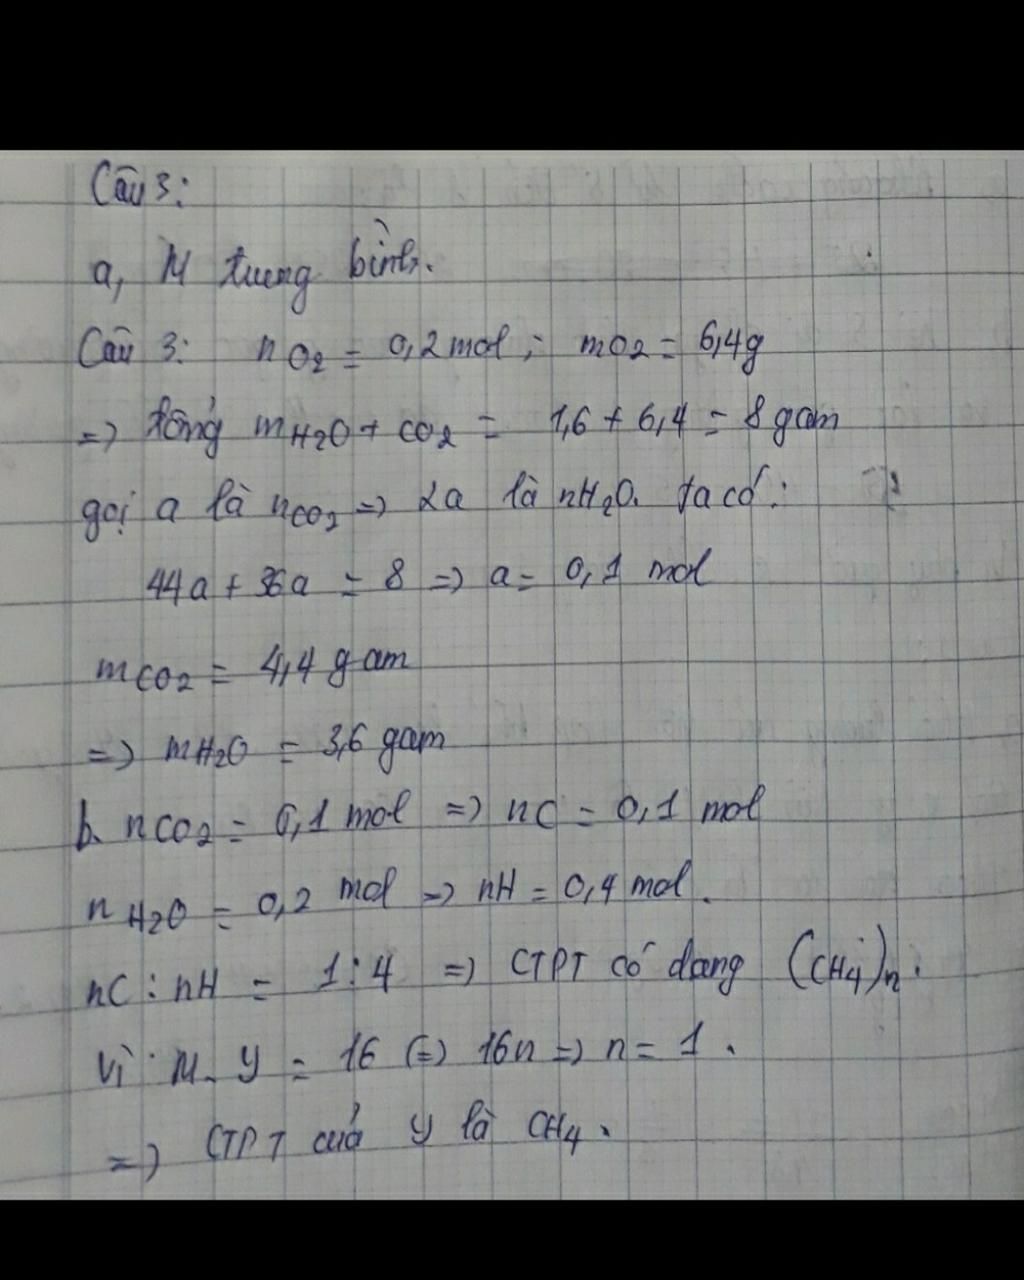 Câu 3:
a, M trung bình.
Câu 3: nO2 = 0,2 mol; mO2 = 6,4g
=> tổng mH2O + CO2 = 1,6 + 6,4 = 8 gam
gọi a là nCO2 => 2a là nH2O. ta có:
44a + 36a = 8 => a = 0,1 mol
mCO2 = 4,4 gam
=> mH2O = 3,6 gam
b. nCO2 = 0,1 mol => nC = 0,1 mol
nH2O = 0,2 mol => nH = 0,4 mol.
nC : nH = 1:4 => CTPT có dạng (CH4)n.
Vì M Y = 16 (=) 16n => n = 1.
=> CTPT của Y là CH4.